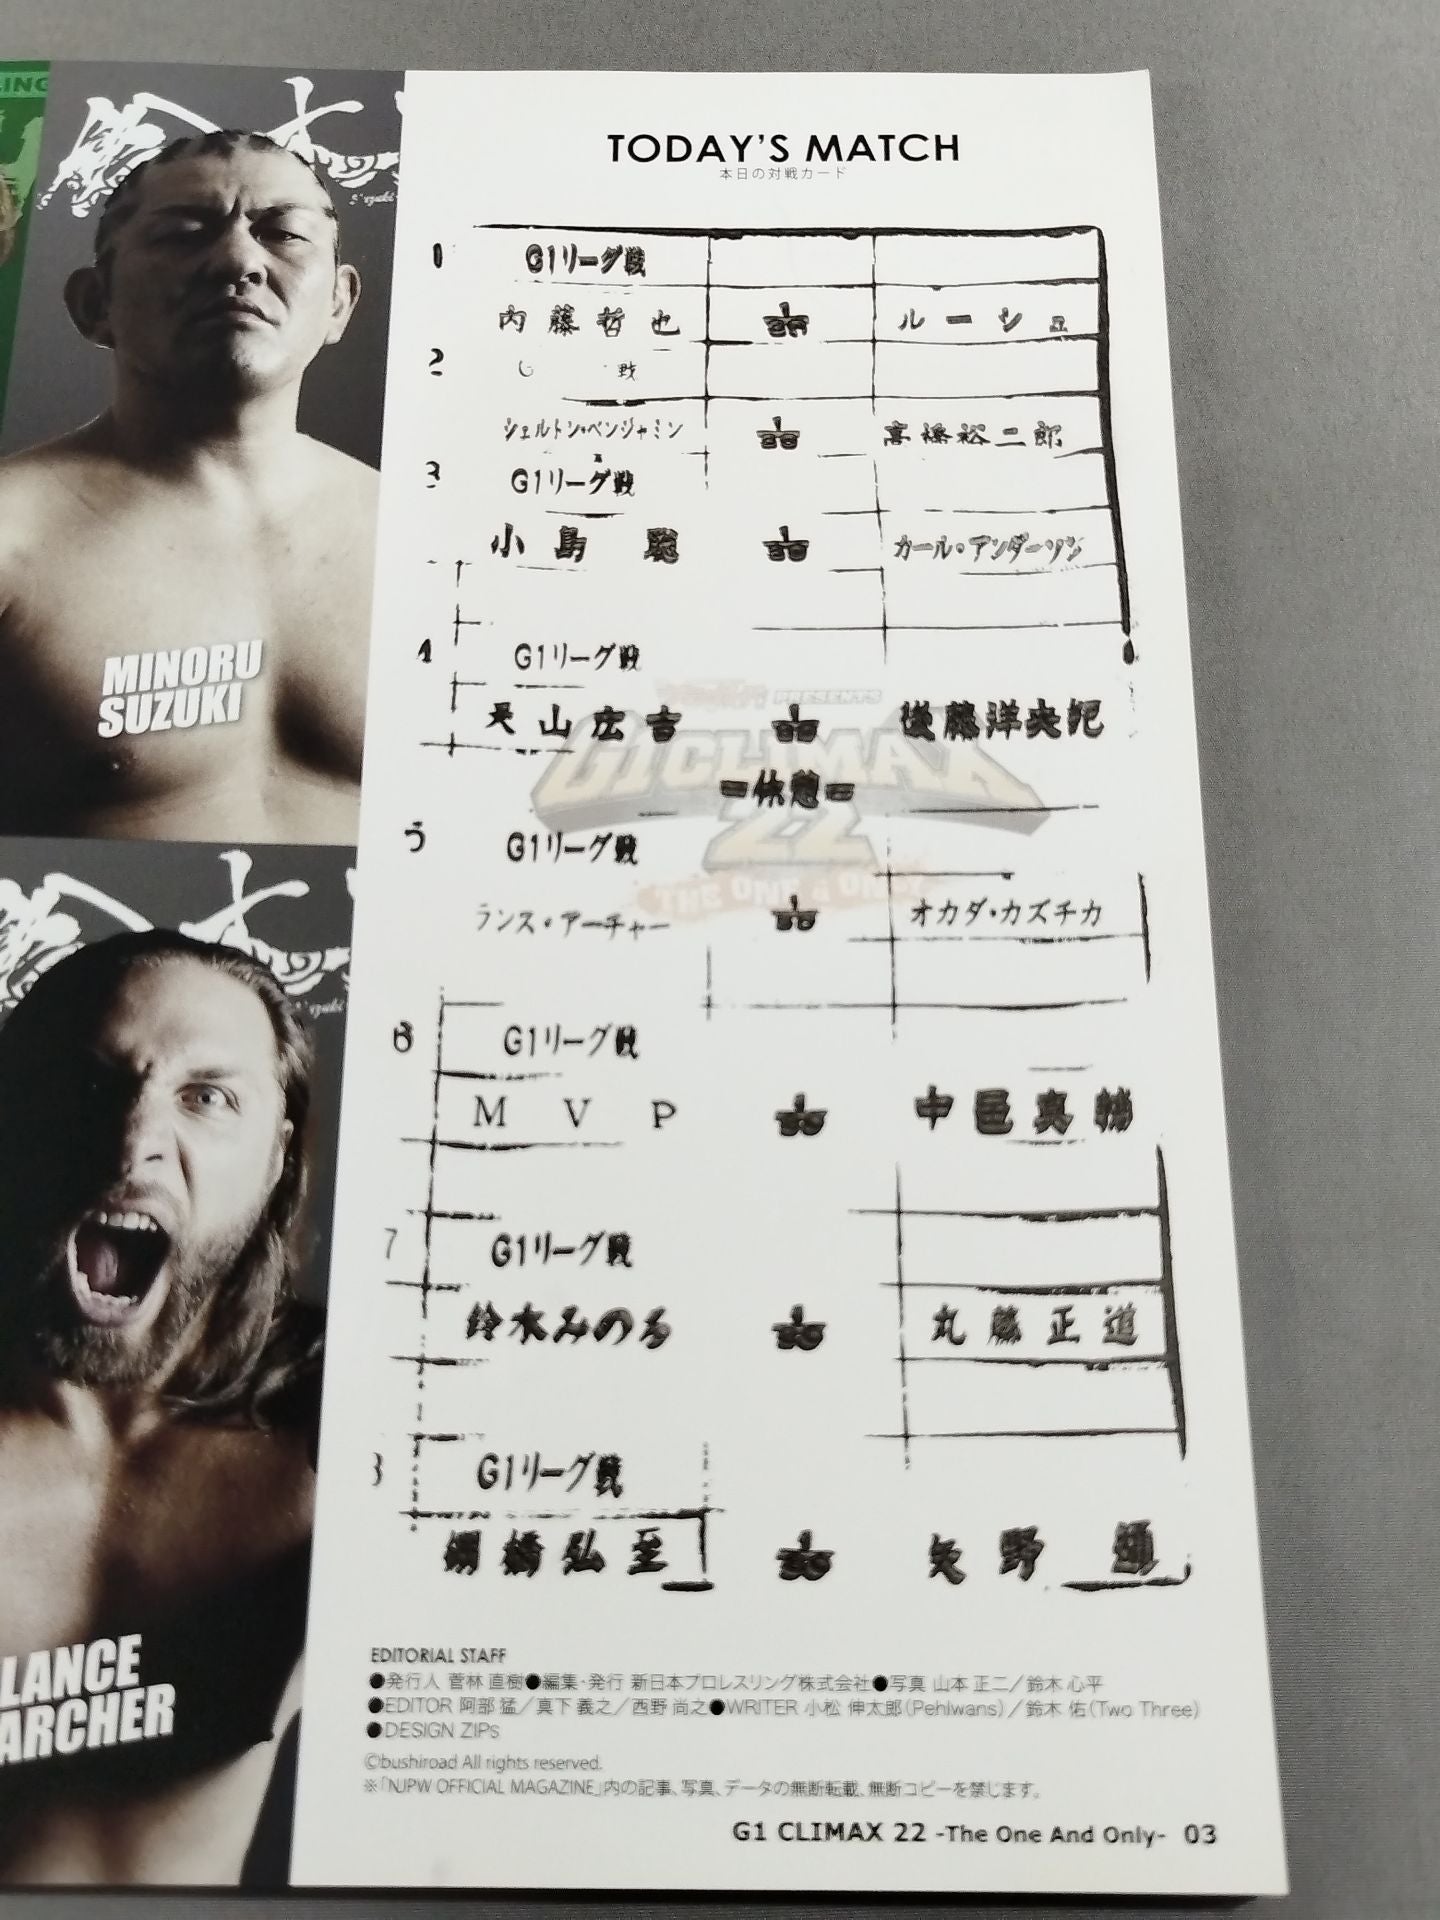 LING
鈴木
Suzuki
MINORU
SUZUKI
鈴木
LANCE
ARCHER
TODAY'S MATCH
本日の対戦カード
1 G1リーグ戦
内藤哲也 ルーシュ
2 戦
シェルトン・ベンジャミン 高橋裕二郎
3 G1リーグ戦
小島 聡 カール・アンダーソン
4 G1リーグ戦
天山広吉 後藤洋央紀
PRESENTS
G1 CLIMAX
22
THE ONE & ONLY
=休憩=
5 G1リーグ戦
ランス・アーチャー オカダ・カズチカ
6 G1リーグ戦
MVP 中邑真輔
7 G1リーグ戦
鈴木みのる 丸藤正道
8 G1リーグ戦
棚橋弘至 矢野 通
EDITORIAL STAFF
●発行人 菅林 直樹●編集・発行 新日本プロレスリング株式会社●写真 山本 正二/鈴木 心平
●EDITOR 阿部 猛/真下 義之/西野 尚之●WRITER 小松 伸太郎(Pehlwans)/鈴木 佑(Two Three)
●DESIGN ZIPs
©bushiroad All rights reserved.
※「NJPW OFFICIAL MAGAZINE」内の記事、写真、データの無断転載、無断コピーを禁じます。
G1 CLIMAX 22 -The One And Only- 03